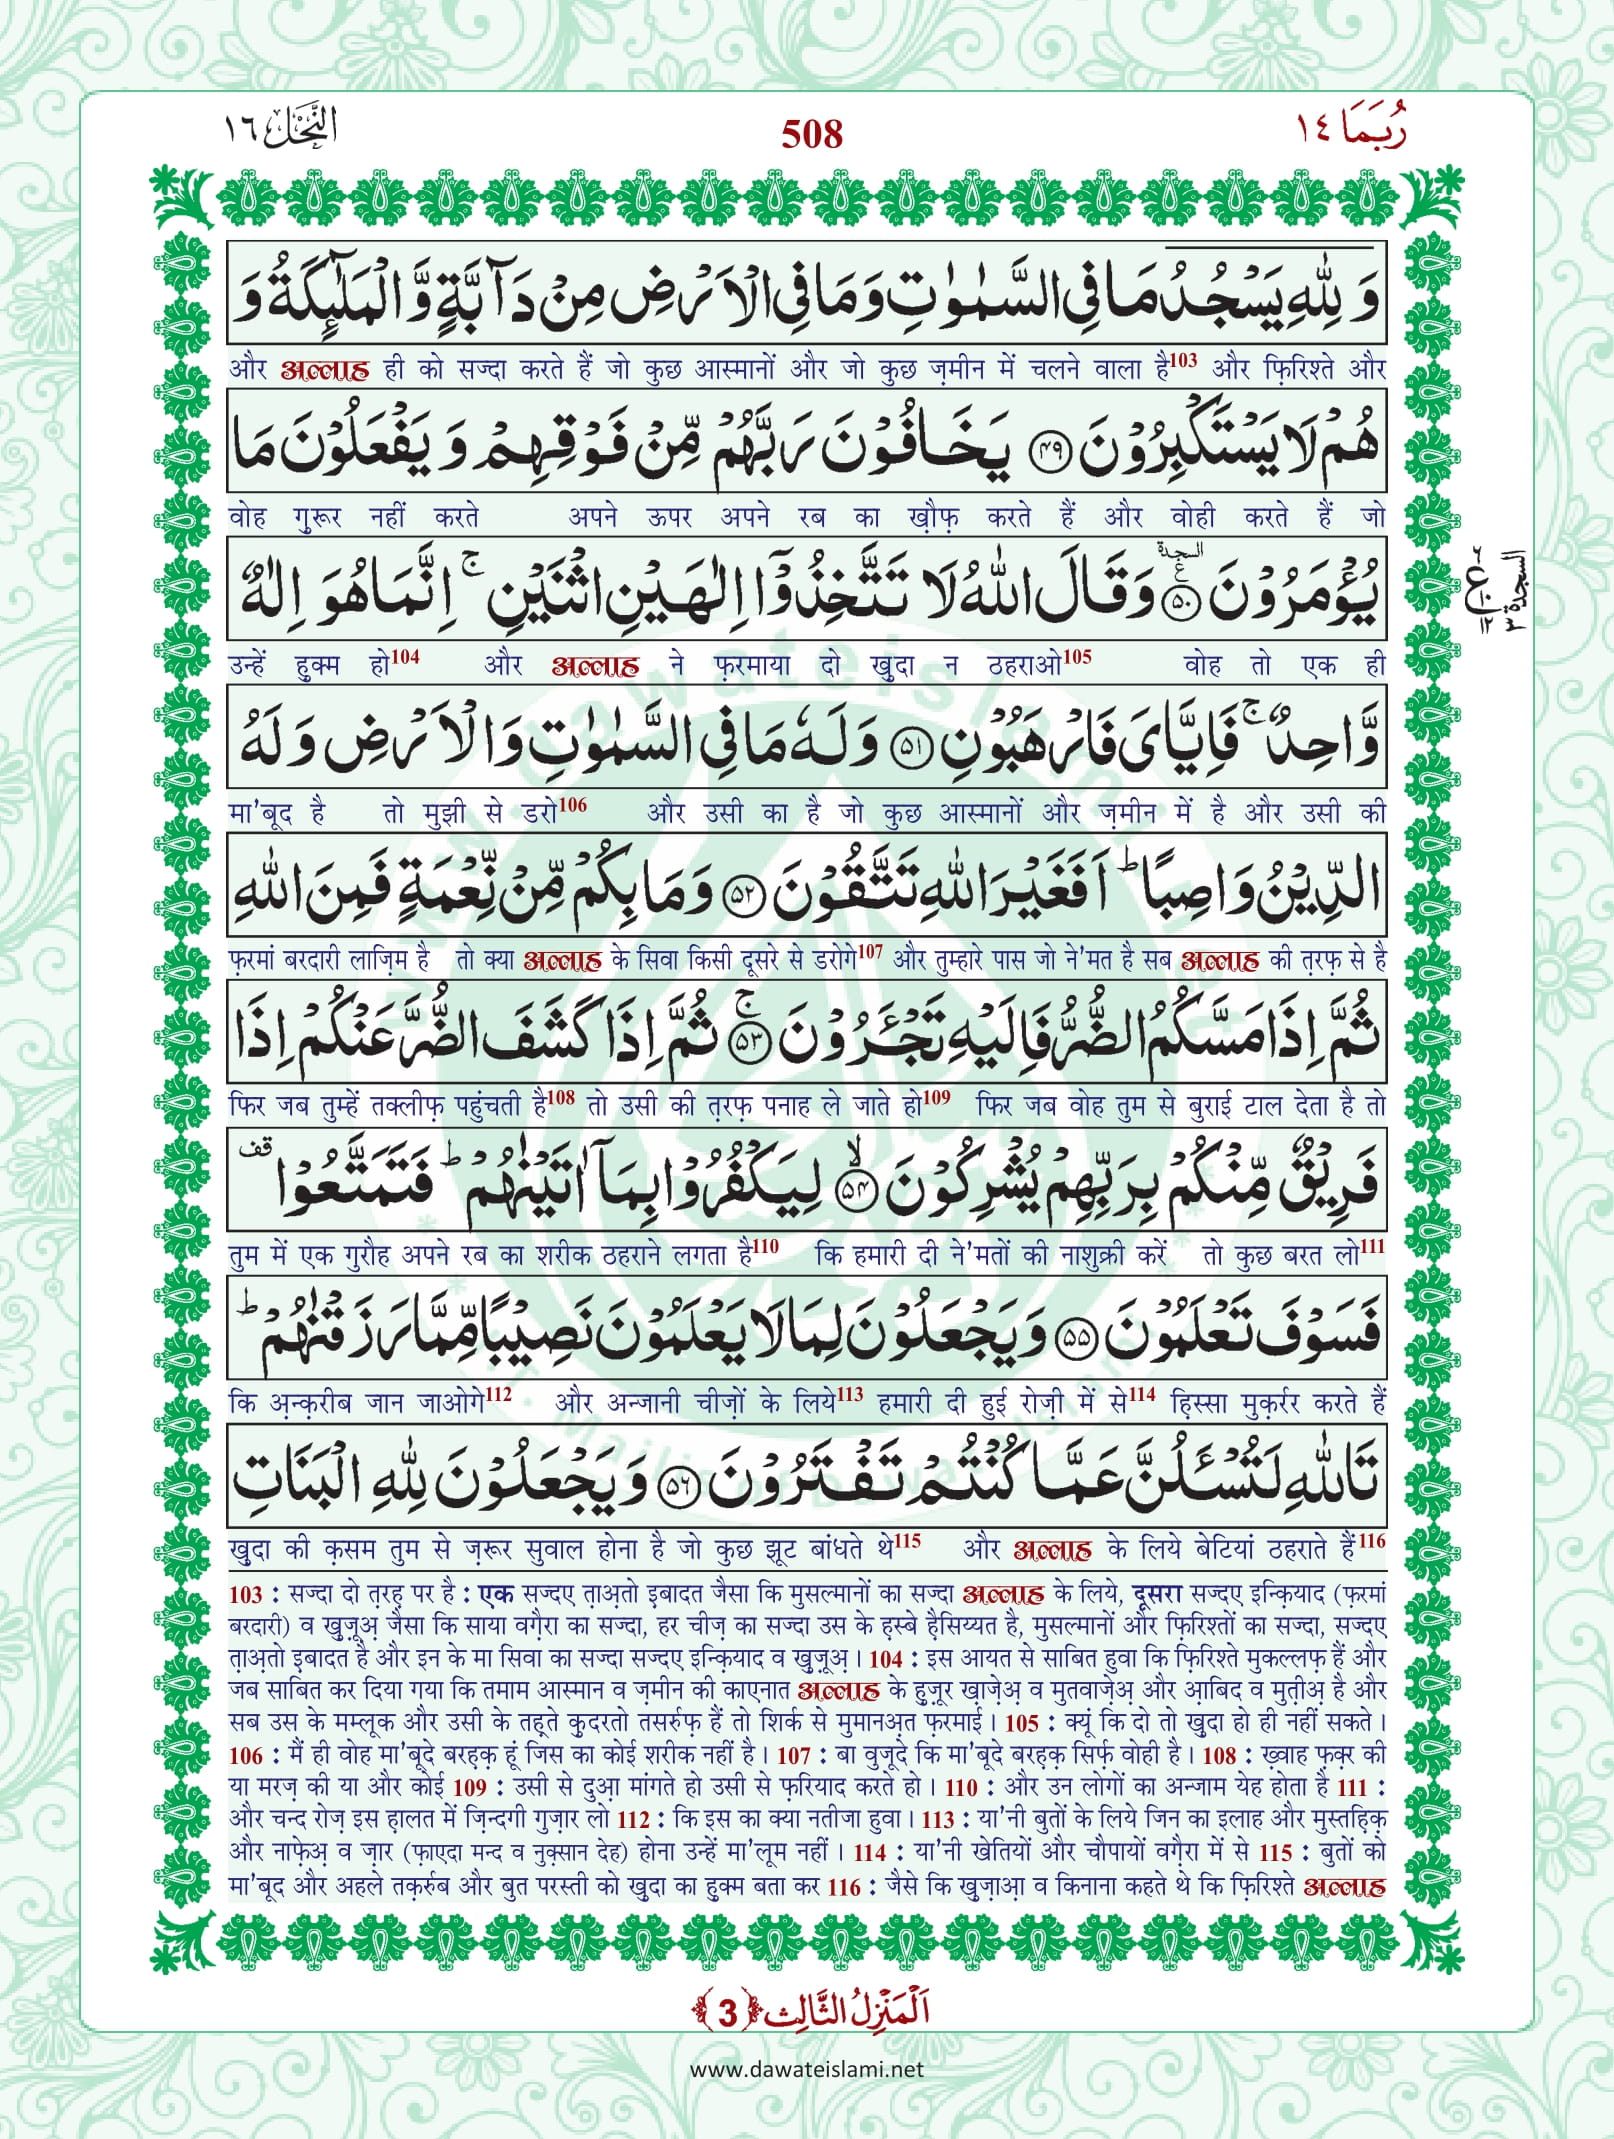 النَّحْل ١٦
508
رُبَمَا ١٤
وَ لِلّٰهِ یَسْجُدُ مَا فِی السَّمٰوٰتِ وَ مَا فِی الْاَرْضِ مِنْ دَآبَّةٍ وَّ الْمَلٰٓىٕكَةُ وَ
और अल्लाह ही को सज्दा करते हैं जो कुछ आस्मानों और जो कुछ ज़मीन में चलने वाला है103 और फ़िरिश्ते और
هُمْ لَا یَسْتَكْبِرُوْنَ ﴿۴۹﴾ یَخَافُوْنَ رَبَّهُمْ مِّنْ فَوْقِهِمْ وَ یَفْعَلُوْنَ مَا
वोह गुरूर नहीं करते अपने ऊपर अपने रब का ख़ौफ़ करते हैं और वोही करते हैं जो
یُؤْمَرُوْنَ ﴿۵۰﴾ السجدة ع وَ قَالَ اللّٰهُ لَا تَتَّخِذُوْۤا اِلٰهَیْنِ اثْنَیْنِ ۚ اِنَّمَا هُوَ اِلٰهٌ
السجدة ٣
उन्हें हुक्म हो104 और अल्लाह ने फ़रमाया दो ख़ुदा न ठहराओ105 वोह तो एक ही
وَّاحِدٌ ۚ فَاِیَّایَ فَارْهَبُوْنِ ﴿۵۱﴾ وَ لَهٗ مَا فِی السَّمٰوٰتِ وَ الْاَرْضِ وَ لَهُ
मा'बूद है तो मुझी से डरो106 और उसी का है जो कुछ आस्मानों और ज़मीन में है और उसी की
الدِّیْنُ وَاصِبًا ؕ اَفَغَیْرَ اللّٰهِ تَتَّقُوْنَ ﴿۵۲﴾ وَ مَا بِكُمْ مِّنْ نِّعْمَةٍ فَمِنَ اللّٰهِ
फ़रमां बरदारी लाज़िम है तो क्या अल्लाह के सिवा किसी दूसरे से डरोगे107 और तुम्हारे पास जो ने'मत है सब अल्लाह की त़रफ़ से है
ثُمَّ اِذَا مَسَّكُمُ الضُّرُّ فَاِلَیْهِ تَجْـَٔرُوْنَ ﴿۵۳﴾ۚ ثُمَّ اِذَا كَشَفَ الضُّرَّ عَنْكُمْ اِذَا
फिर जब तुम्हें तक्लीफ़ पहुंचती है108 तो उसी की त़रफ़ पनाह ले जाते हो109 फिर जब वोह तुम से बुराई टाल देता है तो
فَرِیْقٌ مِّنْكُمْ بِرَبِّهِمْ یُشْرِكُوْنَ ﴿۵۴﴾ۙ لِیَكْفُرُوْا بِمَاۤ اٰتَیْنٰهُمْ ؕ فَتَمَتَّعُوْا قف
तुम में एक गुरौह अपने रब का शरीक ठहराने लगता है110 कि हमारी दी ने'मतों की नाशुक्री करें तो कुछ बरत लो111
فَسَوْفَ تَعْلَمُوْنَ ﴿۵۵﴾ وَ یَجْعَلُوْنَ لِمَا لَا یَعْلَمُوْنَ نَصِیْبًا مِّمَّا رَزَقْنٰهُمْ ؕ
कि अ़न्क़रीब जान जाओगे112 और अन्जानी चीज़ों के लिये113 हमारी दी हुई रोज़ी में से114 हि़स्सा मुक़र्रर करते हैं
تَاللّٰهِ لَتُسْـَٔلُنَّ عَمَّا كُنْتُمْ تَفْتَرُوْنَ ﴿۵۶﴾ وَ یَجْعَلُوْنَ لِلّٰهِ الْبَنَاتِ
ख़ुदा की क़सम तुम से ज़रूर सुवाल होना है जो कुछ झूट बांधते थे115 और अल्लाह के लिये बेटियां ठहराते हैं116
103 : सज्दा दो त़रह़ पर है : एक सज्दए त़ाअ़तो इ़बादत जैसा कि मुसल्मानों का सज्दा अल्लाह के लिये, दूसरा सज्दए इन्क़ियाद (फ़रमां
बरदारी) व ख़ुज़ूअ़ जैसा कि साया वग़ैरा का सज्दा, हर चीज़ का सज्दा उस के ह़स्बे ह़ैसिय्यत है, मुसल्मानों और फ़िरिश्तों का सज्दा, सज्दए
त़ाअ़तो इ़बादत है और इन के मा सिवा का सज्दा सज्दए इन्क़ियाद व ख़ुज़ूअ़ । 104 : इस आयत से साबित हुवा कि फ़िरिश्ते मुकल्लफ़ हैं और
जब साबित कर दिया गया कि तमाम आस्मान व ज़मीन की काएनात अल्लाह के हु़ज़ूर ख़ाज़ेअ़ व मुतवाज़ेअ़ और आ़बिद व मुत़ीअ़ है और
सब उस के मम्लूक और उसी के तह़्ते क़ुदरतो तसर्रुफ़ हैं तो शिर्क से मुमानअ़त फ़रमाई । 105 : क्यूं कि दो तो ख़ुदा हो ही नहीं सकते ।
106 : मैं ही वोह मा'बूदे बरह़क़ हूं जिस का कोई शरीक नहीं है । 107 : बा वुजूदे कि मा'बूदे बरह़क़ सिर्फ़ वोही है । 108 : ख़्वाह फ़क़्र की
या मरज़ की या और कोई 109 : उसी से दुआ़ मांगते हो उसी से फ़रियाद करते हो । 110 : और उन लोगों का अन्जाम येह होता है 111 :
और चन्द रोज़ इस ह़ालत में ज़िन्दगी गुज़ार लो 112 : कि इस का क्या नतीजा हुवा । 113 : या'नी बुतों के लिये जिन का इलाह और मुस्तह़िक़
और नाफ़ेअ़ व ज़ार (फ़ाएदा मन्द व नुक़्सान देह) होना उन्हें मा'लूम नहीं । 114 : या'नी खेतियों और चौपायों वग़ैरा में से 115 : बुतों को
मा'बूद और अहले तक़र्रुब और बुत परस्ती को ख़ुदा का हु़क्म बता कर 116 : जैसे कि ख़ुज़ाआ़ व किनाना कहते थे कि फ़िरिश्ते अल्लाह
اَلْمَنْزِلُ الثَّالِث ﴿3﴾
www.dawateislami.net